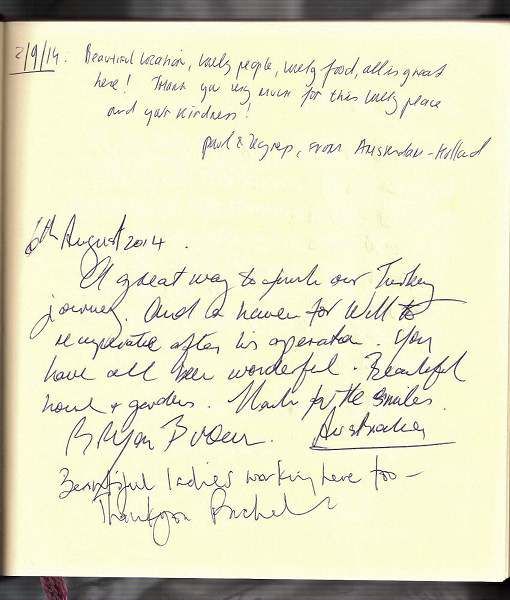 2/9/14: Beautiful location, lovely people, lovely food, all is great
here! Thank you very much for this lovely place
and your kindness!
paul &, from Amsterdam - Holland
6th August 2014.
A great way to finish our Turkey
journey. And a haven for Will to
recuperate after his operation. You
have all been wonderful. Beautiful
hotel + gardens. Thanks for the smiles.
Bryan Australia
Beautiful ladies working here too -
Thankyou